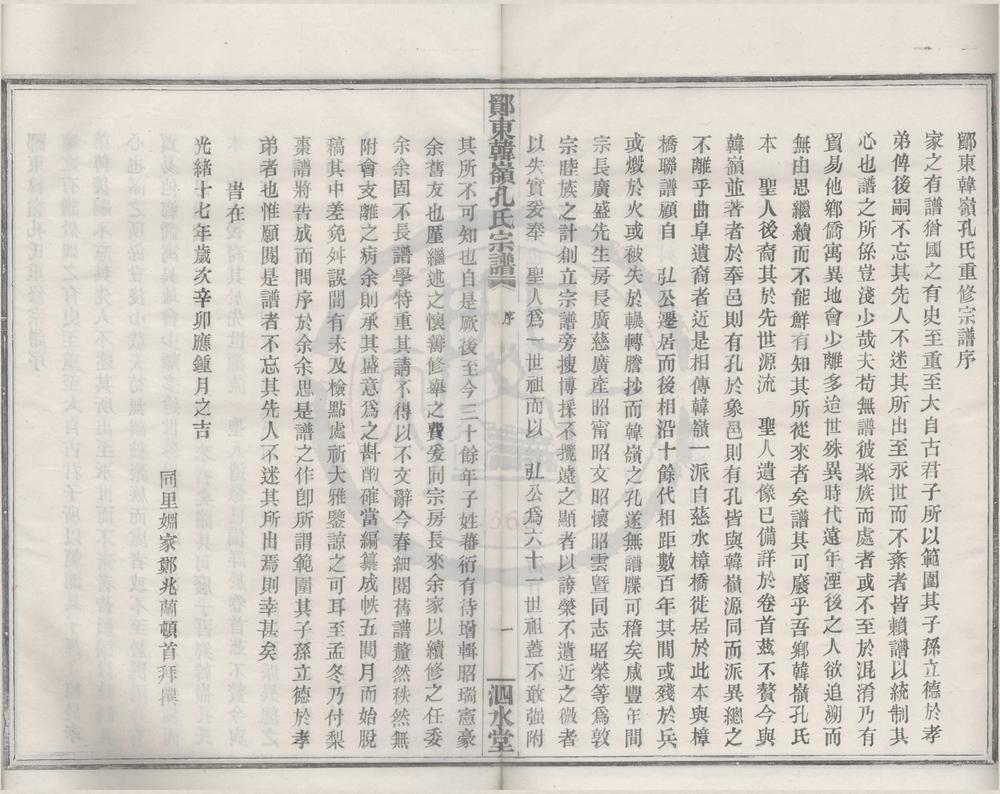 鄮東韓嶺孔氏重修宗譜序
家之有譜猶國之有史至重至大自古君子所以範圍其子孫立德於孝
弟俾後嗣不忘其先人不迷其所出至永世而不紊者皆賴譜以統制其
心也譜之所係豈淺少哉夫苟無譜彼聚族而處者或不至於混淆乃有
貿易他鄉僑寓異地會少離多迨世殊異時代遠年湮後之人欲追溯而
無由思繼續而不能鮮有知其所從來者矣譜其可廢乎吾鄉韓嶺孔氏
本 聖人後裔其於先世源流 聖人遺像已備詳於卷首茲不贅今與
韓嶺並著者於奉邑則有孔於象邑則有孔皆與韓嶺源同而派異總之
不離乎曲阜遺裔者近是相傳韓嶺一派自慈水樟橋徙居於此本與樟
橋聯譜顧自 弘公遷居而後相沿十餘代相距數百年其間或殘於兵
或燬於火或被失於輾轉謄抄而韓嶺之孔遂無譜牒可稽矣咸豐年間
宗長廣盛先生房長廣慈廣產昭甯昭文昭懷昭雲暨同志昭榮等為敦
宗睦族之計創立宗譜旁搜博採不攬遠之顯者以誇榮不遺近之微者
以失實爰奉 聖人為一世祖而以 弘公為六十一世祖蓋不敢强附
鄮東韓嶺孔氏宗譜 序 一 泗水堂
其所不可知也自是厥後至今三十餘年子姓蕃衍有待增輯昭瑞憲豪
余舊友也屢繼述之懷善修舉之費爰同宗房長來余家以續修之任委
余余固不長譜學特重其請不得以不文辭今春細閱舊譜釐然秩然無
附會支離之病余則承其盛意為之斟酌確當編纂成帙五閱月而始脫
稿其中差免舛誤間有未及檢點處祈大雅鑒諒之可耳至孟冬乃付梨
棗譜將告成而問序於余余思是譜之作卽所謂範圍其子孫立德於孝
弟者也惟願閱是譜者不忘其先人不迷其所出焉則幸甚矣
旹在
光緒十七年歲次辛卯應鍾月之吉
同里媚家鄭兆蘭頓首拜撰